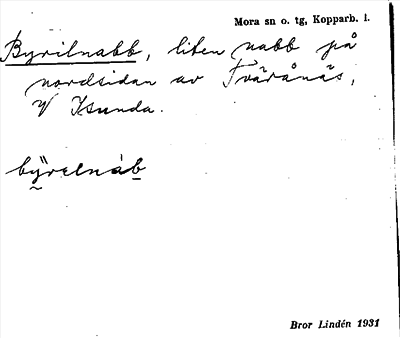 Mora sn o. tg, Kopparb. l.
Byrilnabb, liten nabb på
nordsidan av Tvärånäs,
V Isunda.
bÿrelnáb
Bror Lindén 1931